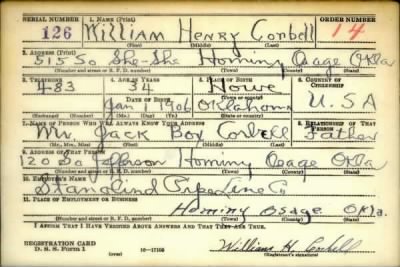 SERIAL NUMBER 1. NAME (Print) ORDER NUMBER
126 William Henry Corbell 14
(First) (Middle) (Last)
2. ADDRESS (Print)
515 So She-She Hominy Osage Okla
(Number and street or R. F. D. number) (Town) (County) (State)
3. TELEPHONE 4. AGE IN YEARS 5. PLACE OF BIRTH 6. COUNTRY OF CITIZENSHIP
483 34 Howe
DATE OF BIRTH
Jan 1 1906 Oklahoma U.S.A
(Mo.) (Day) (Yr.) (State or country)
7. NAME OF PERSON WHO WILL ALWAYS KNOW YOUR ADDRESS 8. RELATIONSHIP OF THAT PERSON
Mr. Jack Box Corbell Father
(Mr., Mrs., Miss) (First) (Middle) (Last)
9. ADDRESS OF THAT PERSON
120 So Jefferson Hominy Osage Okla
(Number and street or R. F. D. number) (Town) (County) (State)
10. EMPLOYER'S NAME
Stanolind Pipe Line Co
11. PLACE OF EMPLOYMENT OR BUSINESS
Hominy Osage Okla.
(Number and street or R. F. D. number) (Town) (County) (State)
I AFFIRM THAT I HAVE VERIFIED ABOVE ANSWERS AND THAT THEY ARE TRUE.
REGISTRATION CARD
D. S. S. Form 1 16-17105 William H. Corbell
(Registrant's signature)